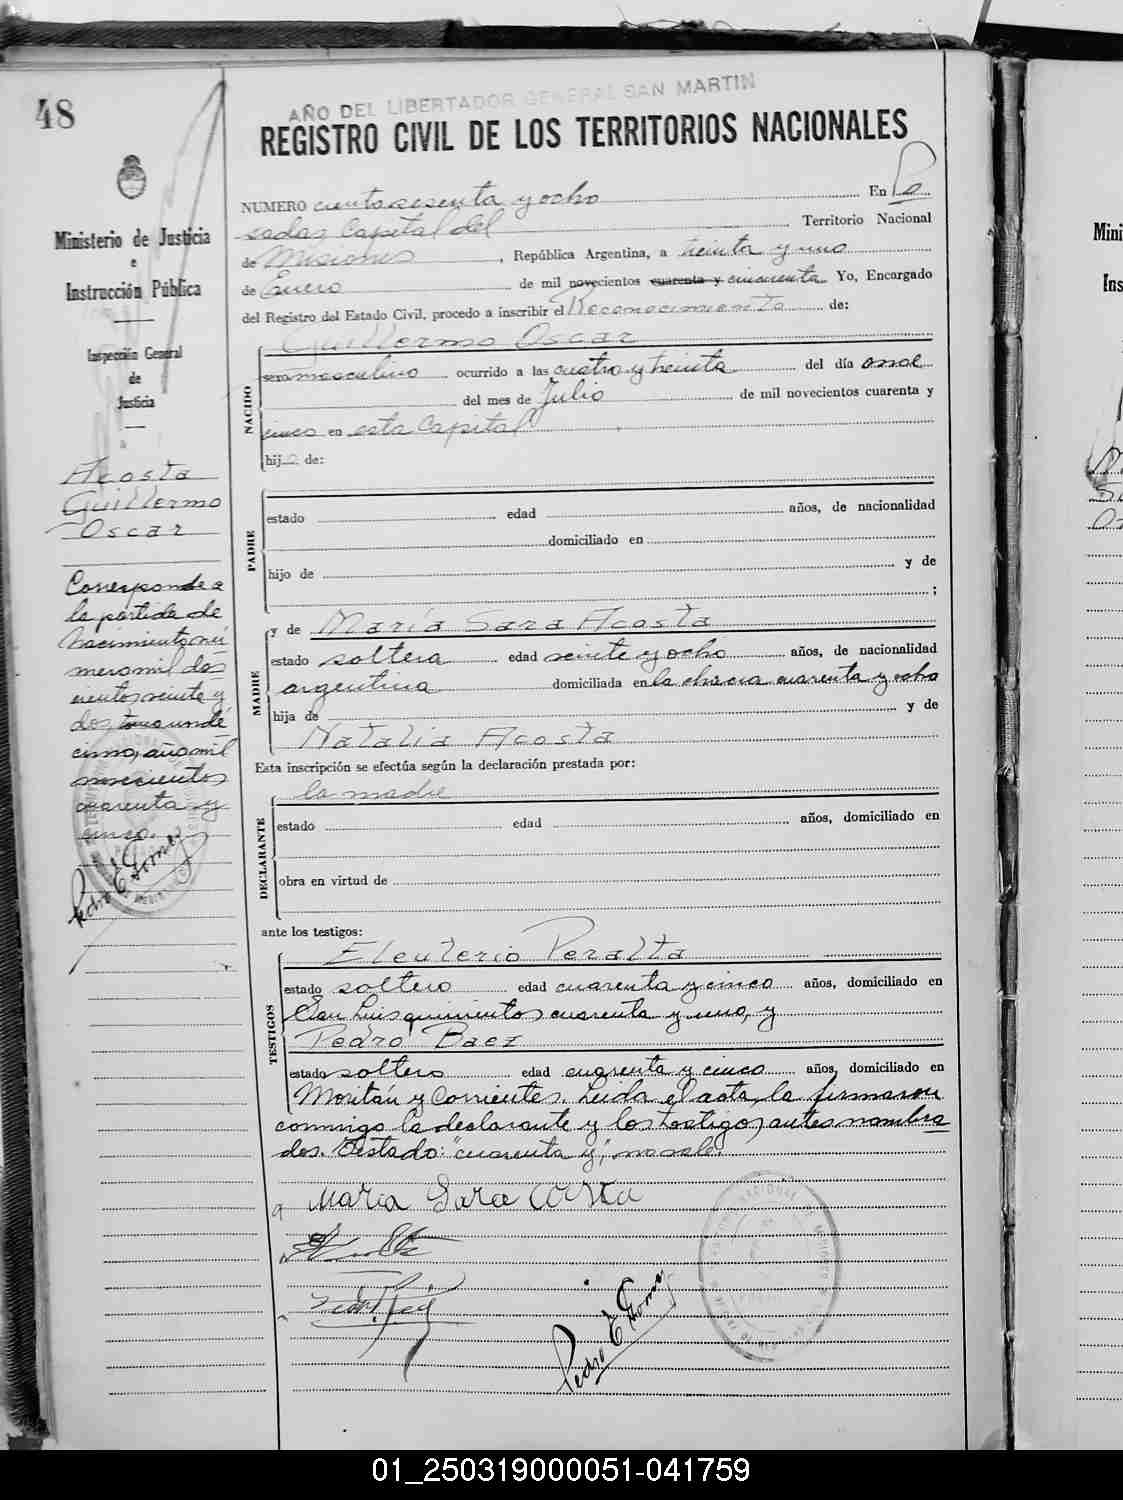 48
AÑO DEL LIBERTADOR GENERAL SAN MARTIN
REGISTRO CIVIL DE LOS TERRITORIOS NACIONALES
Ministerio de Justicia
e
Instrucción Pública
Inspección General
de
Justicia
Acosta
Guillermo
Oscar
Corresponde a
la partida de
Nacimiento nú
mero mil dos
cientos veinte y
dos tomo undé
cimo, año mil
novecientos
cuarenta y
cinco.
Pedro E Gomez
NUMERO ciento sesenta y ocho En Po
sadas Capital del Territorio Nacional
de Misiones, República Argentina, a treinta y uno
de Enero de mil novecientos cuarenta y cincuenta Yo, Encargado
del Registro del Estado Civil, procedo a inscribir el Reconocimiento de:
Guillermo Oscar
NACIDO
sexo masculino ocurrido a las cuatro y treinta del día once
del mes de Julio de mil novecientos cuarenta y
cinco en esta Capital
hijo de:
PADRE
estado edad años, de nacionalidad
domiciliado en
hijo de y de
;
MADRE
y de María Sara Acosta
estado soltera edad veinte y ocho años, de nacionalidad
argentina domiciliada en la chacra cuarenta y ocho
hija de y de
Natalia Acosta
Esta inscripción se efectúa según la declaración prestada por:
DECLARANTE
la madre
estado edad años, domiciliado en
obra en virtud de
ante los testigos:
TESTIGOS
Eleuterio Peralta
estado soltero edad cuarenta y cinco años, domiciliado en
San Luis quinientos cuarenta y uno, y
Pedro Baez
estado soltero edad cuarenta y cinco años, domiciliado en
Moritán y Corrientes. Leida el acta, la firmaron
conmigo la declarante y los testigos antes nombra
dos. Testado: "cuarenta y", no vale.
Maria Sara Costa
Pedro E Gomez
Mini
Ins
01_250319000051-041759